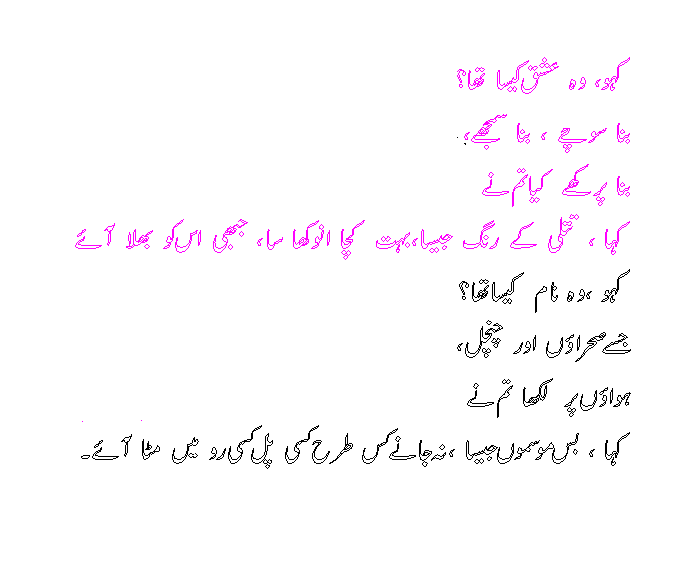 کہو، وہ عشق کیسا تھا؟
بنا سوچے ، بنا سمجھے،
بنا پرکھے کیا تم نے
کہا ، تتلی کے رنگ جیسا، بہت کچا انوکھا سا، جبھی اس کو بھلا آئے
کہو ،وہ نام کیسا تھا؟
جسے صحراؤں اور چنچل،
ہواؤں پر لکھا تم نے
کہا ، بس موسموں جیسا ،نہ جانے کس طرح کسی پل کسی رو میں مٹا آئے۔